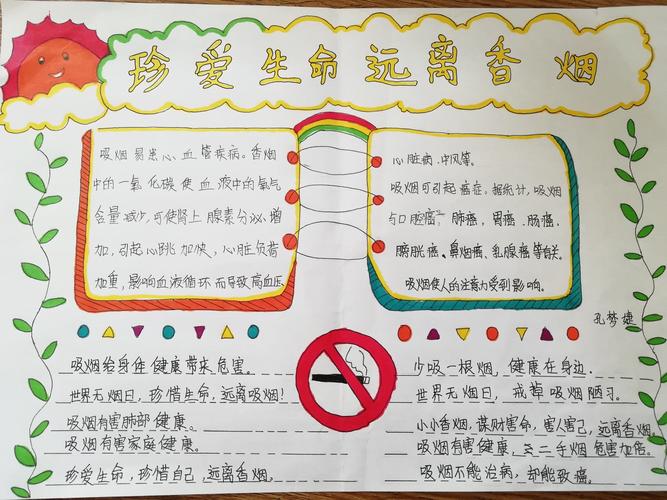 珍爱生命远离香烟
吸烟易患心血管疾病。香烟
中的一氧化碳使血液中的氧气
含量减少,可使肾上腺素分泌增
加,引起心跳加快,心脏负荷
加重,影响血液循环而导致高血压
心脏病、中风等。
吸烟可引起癌症。据统计,吸烟
与口腔癌、肺癌、胃癌、肠癌、
膀胱癌、鼻烟癌、乳腺癌等有关。
吸烟使人的注意力受到影响。
孔梦婕
吸烟给身体健康带来危害。
世界无烟日,珍惜生命,远离吸烟!
吸烟有害肺部健康。
吸烟有害家庭健康。
珍爱生命,珍惜自己,远离香烟。
少吸一根烟,健康在身边.
世界无烟日,戒草吸烟陋习。
小小香烟,谋财害命,害人害己,远离香烟。
吸烟有害健康,二手烟危害加倍。
吸烟不能治病,却能致癌。